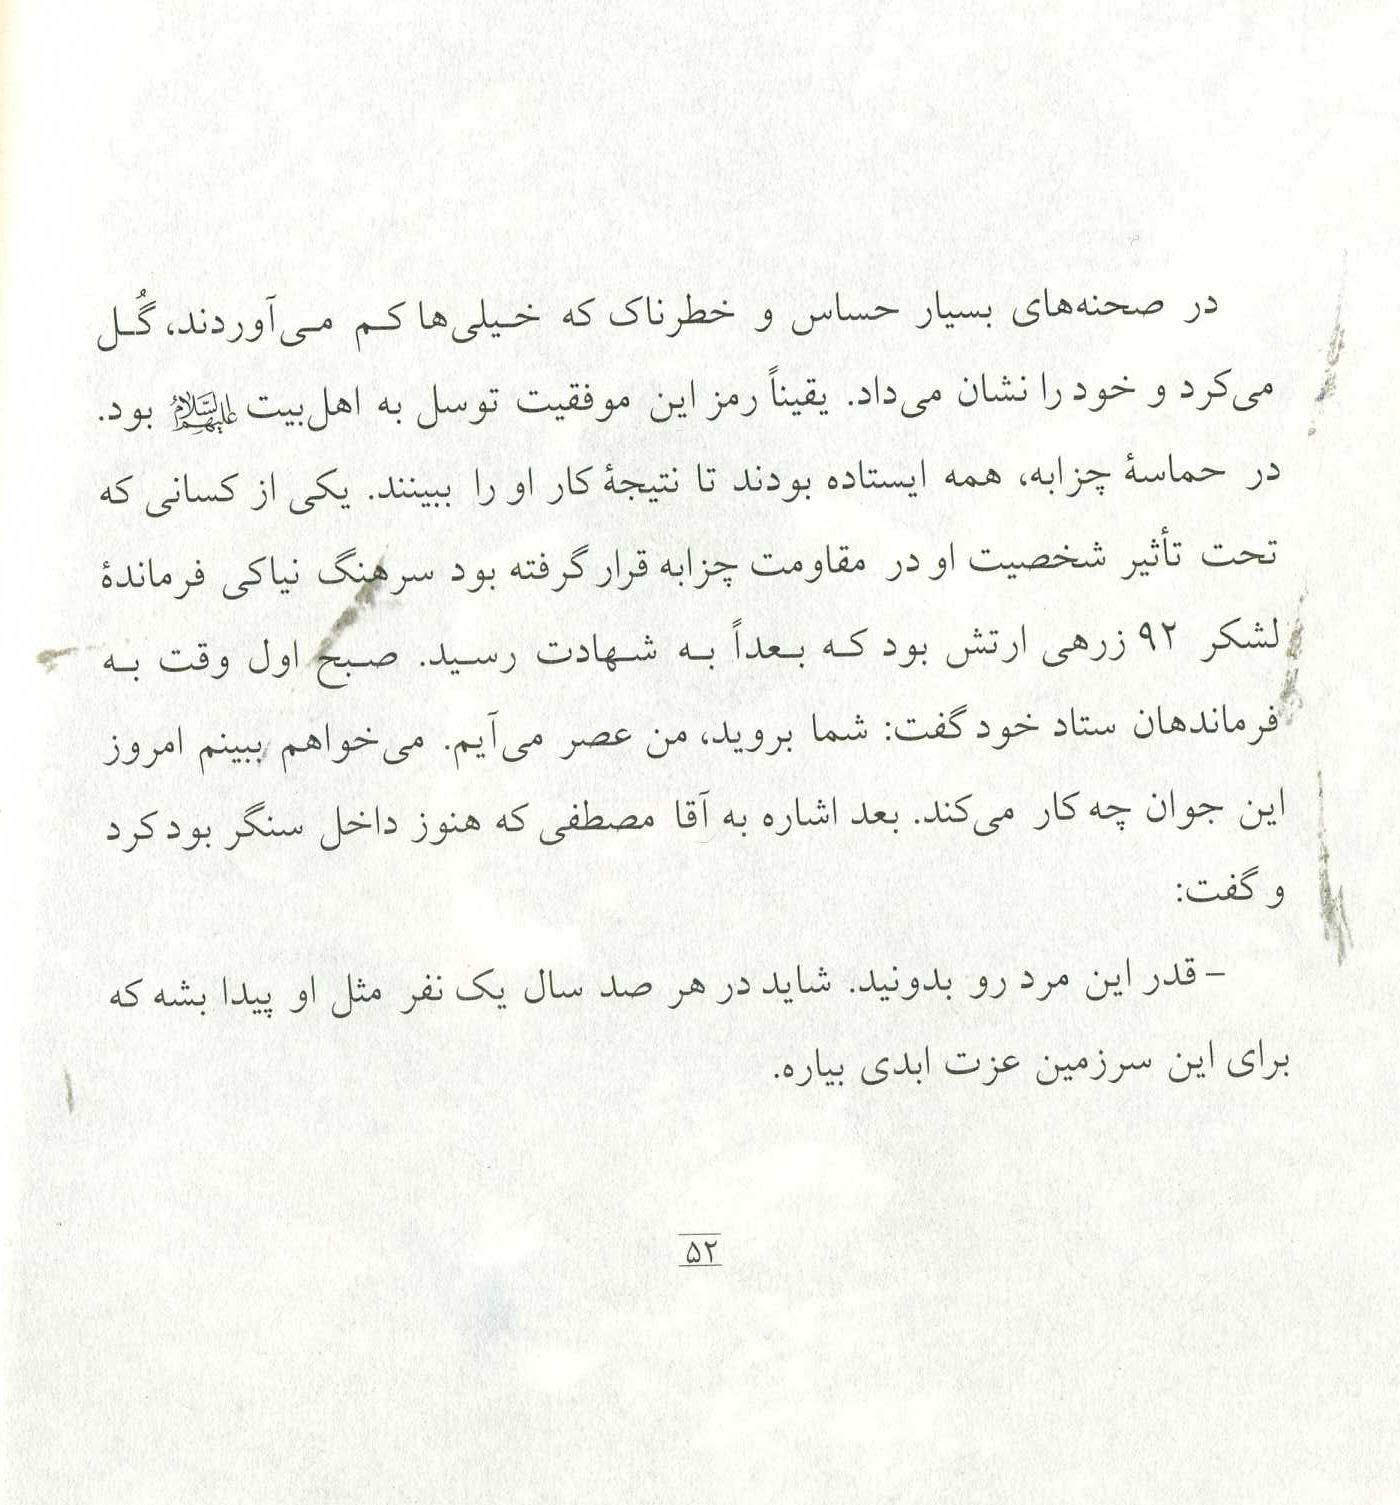 در صحنه‌های بسیار حساس و خطرناک که خیلی‌ها کم می‌آوردند، گُل
می‌کرد و خود را نشان می‌داد. یقیناً رمز این موفقیت توسل به اهل‌بیت علیهم‌السلام بود.
در حماسهٔ چزابه، همه ایستاده بودند تا نتیجهٔ کار او را ببینند. یکی از کسانی که
تحت تأثیر شخصیت او در مقاومت چزابه قرار گرفته بود سرهنگ نیاکی فرماندهٔ
لشکر ۹۲ زرهی ارتش بود که بعداً به شهادت رسید. صبح اول وقت به
فرماندهان ستاد خود گفت: شما بروید، من عصر می‌آیم. می‌خواهم ببینم امروز
این جوان چه کار می‌کند. بعد اشاره به آقا مصطفی که هنوز داخل سنگر بود کرد
و گفت:
- قدر این مرد رو بدونید. شاید در هر صد سال یک نفر مثل او پیدا بشه که
برای این سرزمین عزت ابدی بیاره.
۵۲